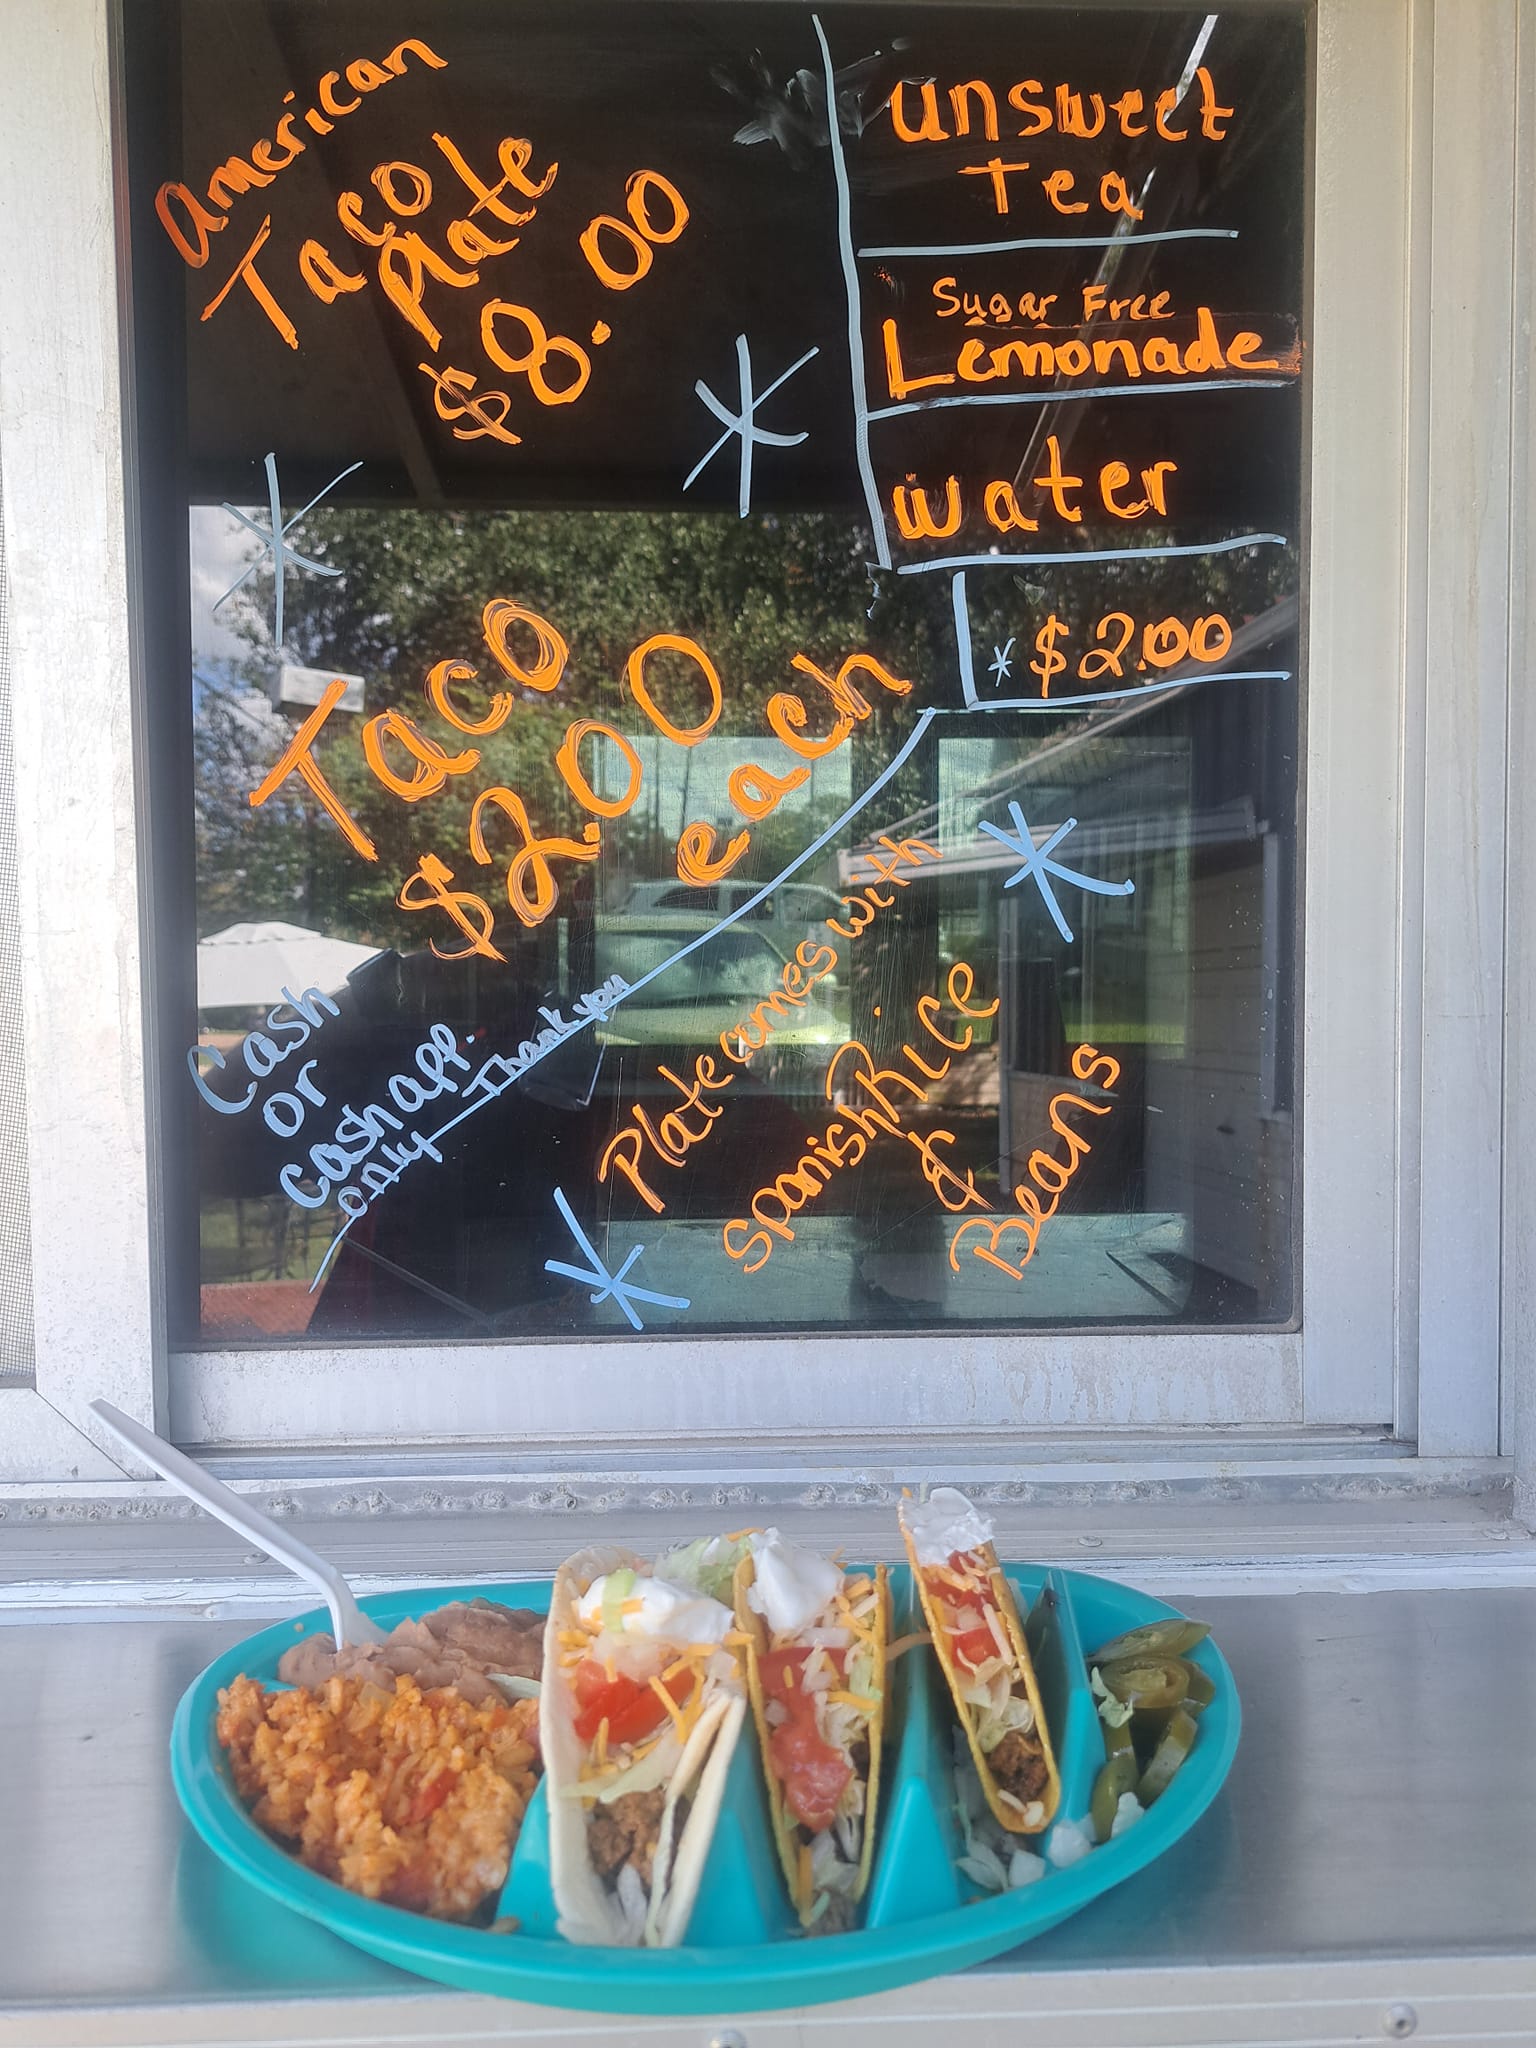 American
Taco
Plate
$8.00
unsweet
Tea
Sugar Free
Lemonade
water
$2.00
Taco
$2.00
each
Cash
or
cash app.
only
Thank you
Plate comes with
Spanish Rice
&
Beans